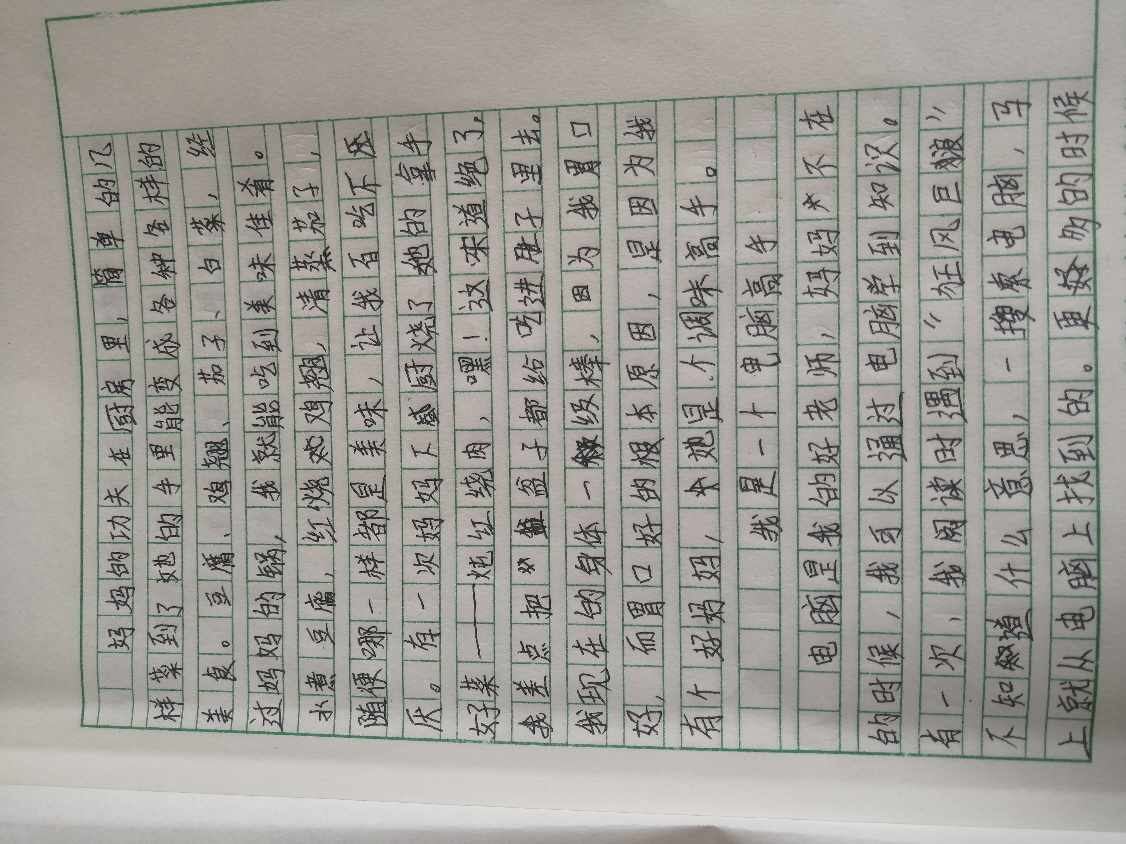 妈妈的功夫在厨房里，简单的几
样菜到了她的手里能变成各种各样的
美食。豆腐、鸡翅、茄子、白菜，经
过妈妈的锅，我就能吃到美味佳肴。
水煮豆腐，红烧鸡翅，清蒸茄子，
随便哪一样都是美味，让我百吃不
厌。有一次妈妈下厨烧了她的拿手
好菜——炖红烧肉，嘿！这味道绝了，
我差点把盆子都给吃进肚子里去。
我现在的身体一级棒，因为我胃口
好，而胃口好的根本原因，是因为我
有个好妈妈，她是个调味高手。
我是一个电脑高手
电脑是我的好老师，妈妈不在
的时候，我可以通过电脑学到知识。
有一次，我阅读时遇到”狂风巨飙”
不知道什么意思，一搜索电脑，马
上就从电脑上找到的。更多的时候